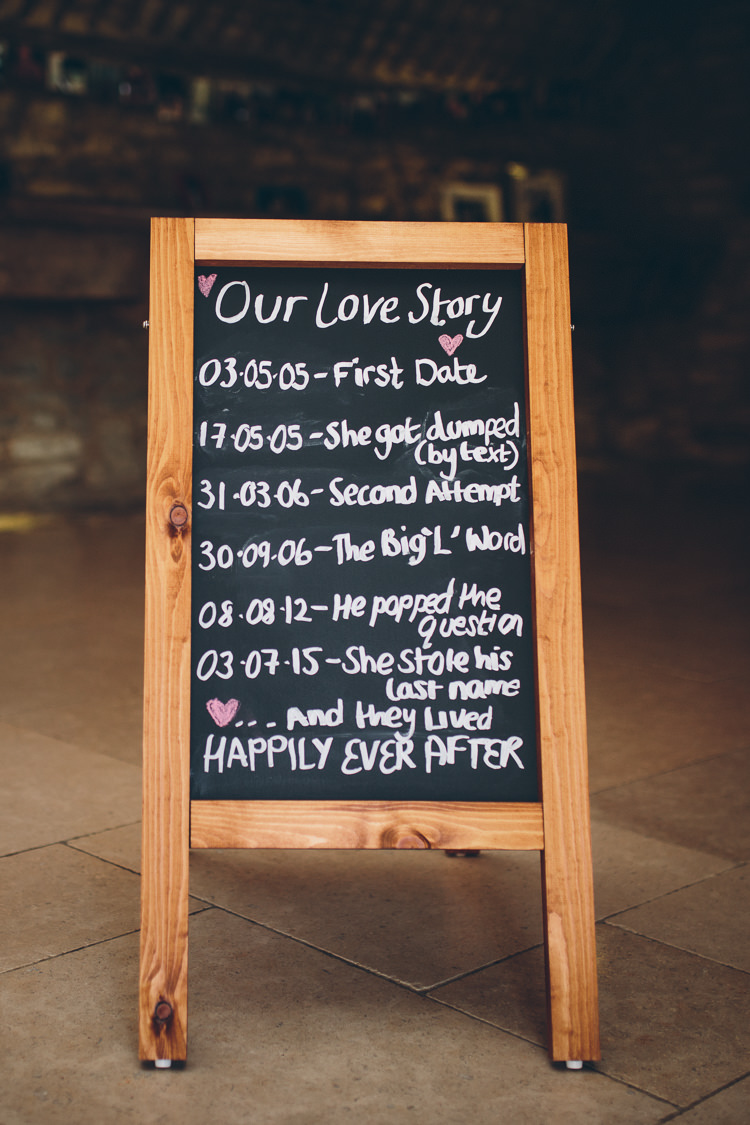 Our Love Story
03.05.05-First Date
17.05.05-She got dumped
(by text)
31.03.06-Second Attempt
30.09.06-The Big 'L' Word
08.08.12-He popped the
question
03.07.15-She stole his
last name
... And they lived
HAPPILY EVER AFTER